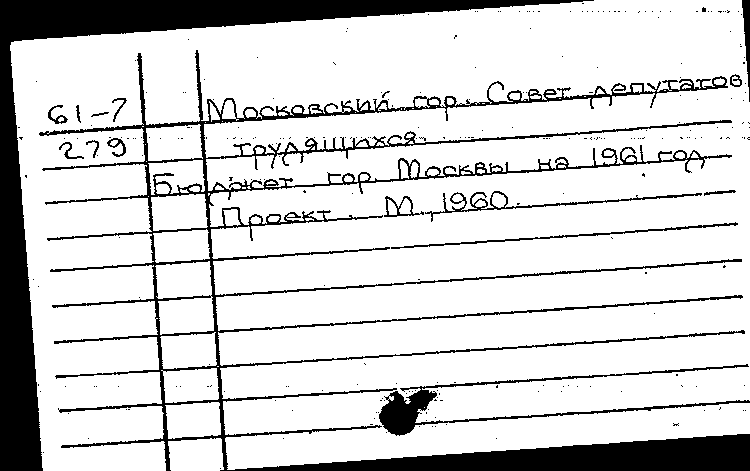 61-7 Московский гор. Совет депутатов
279 трудящихся.
Бюджет гор. Москвы на 1961 год
Проект. М., 1960.